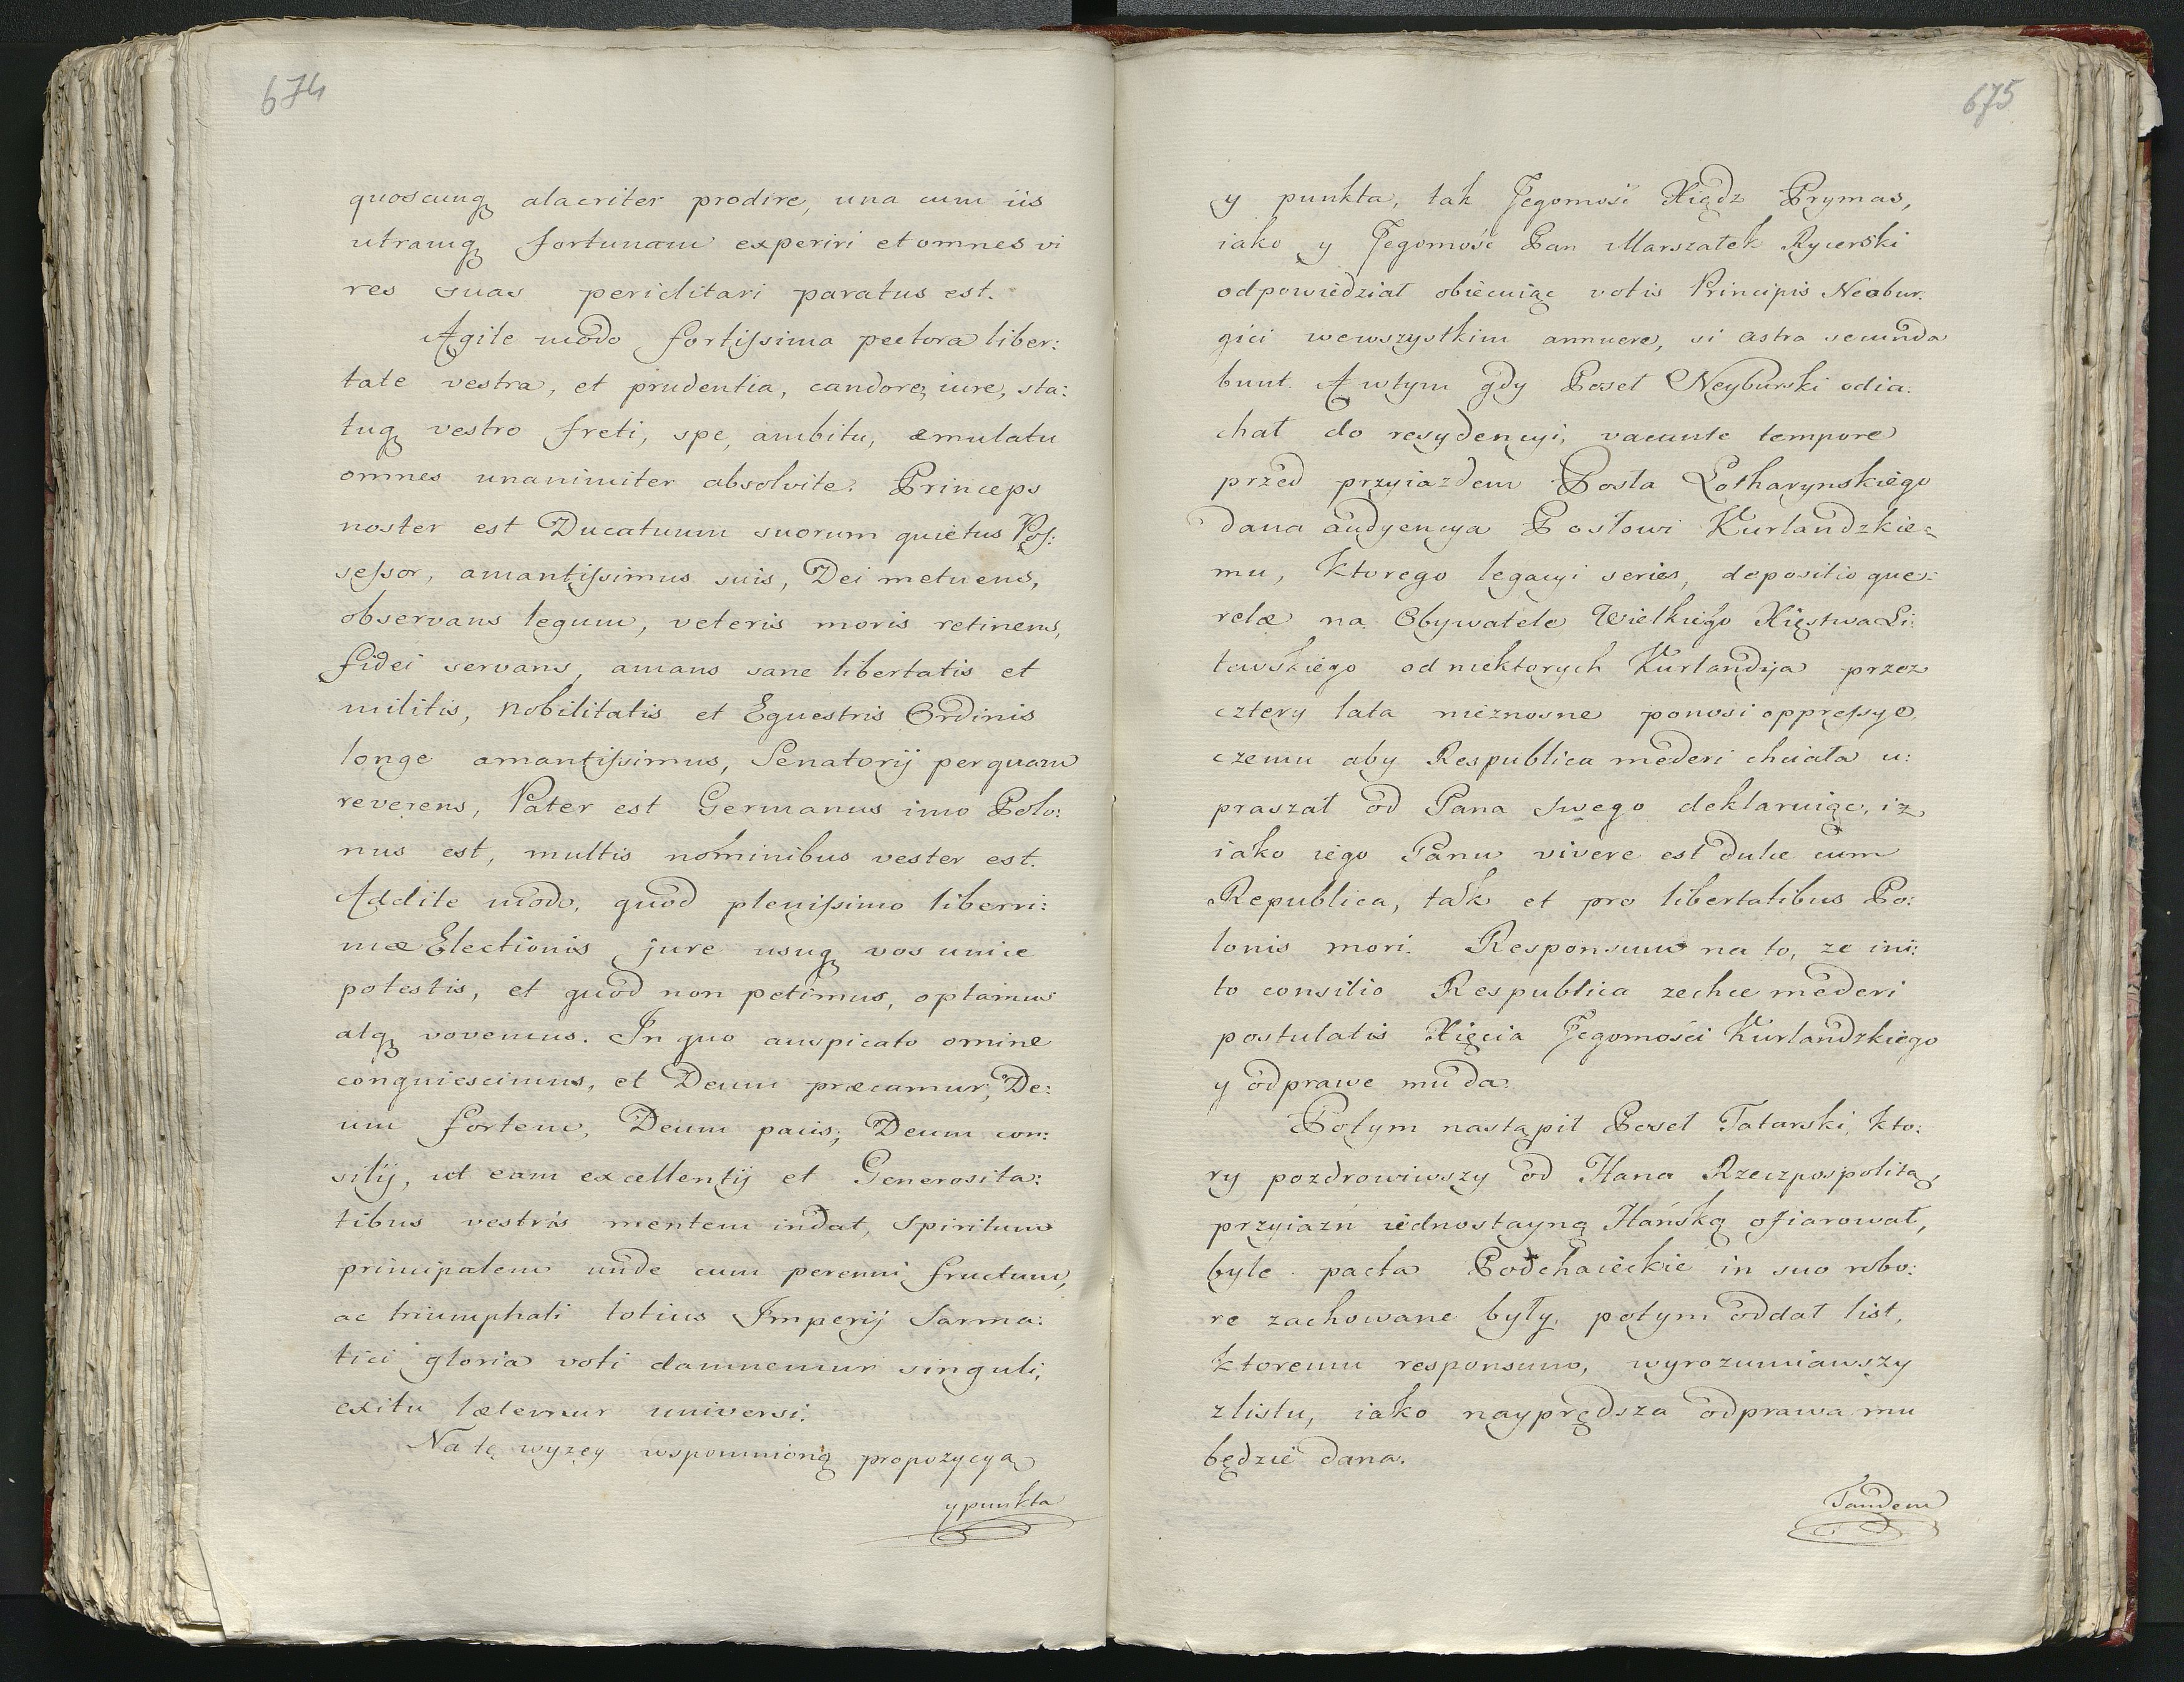 674
quoscunq alacriter prodire, una cum iis
utramq fortunam experiri et omnes vi
res suas periclitari paratus est.
Agite modo fortissima pectora liber:
tate vestra, et prudentia, candore, iure, sta:
tuq vestro freti, spe, ambitu, æmulatu
omnes unanimiter absolvite. Princeps
noster est Ducatuum suorum quietus Pos:
sessor, amantissimus suis, Dei metuens,
observans legum, veteris moris retinens,
fidei servans, amans sane libertatis et
militis, Nobilitatis et Equestris Ordinis
longe amantissimus, Senatorij perquam
reverens, Pater est Germanus imo Polo:
nus est, multis nominibus vester est.
Addite modo, quod plenissimo liberri:
mæ Electionis jure usuq vos unice
potestis, et quod non petimus, optamus
atq vovemus. In quo auspicato omine
conquiescimus, et Deum præcamur, De:
um fortem, Deum pacis, Deum con:
silij, ut eam excellentij et Generosita:
tibus vestris mentem indat, Spiritum
principalem unde cum perenni fructum,
ac triumphali totius Imperij Sarma:
tici gloria voti damnemur singuli,
exitu lætemur universi.
Na tę wyzey wspomnioną propozycyą
y punkta
675
y punkta, tak Jegomość Xiądz Prymas,
iako y Jegomość Pan Marszałek Rycerski
odpowiedział obiecuiąc votis Principis Neobur.
gici wewszystkim annuere, si astra secunda
bunt. A wtym gdy Poseł Neyburski odia:
chał do rezydencyi, vacante tempore
przed przyiazdem Posła Lotharynskiego
dana audyencya Posłowi Kurlandzkie:
mu, ktorego legacyi series, depositio que:
relæ na Obywatele Wielkiego Xięstwa Li:
tewskiego od niektorych Kurlandya przez
cztery lata nieznosne ponosi oppressye,
czemu aby Respublica mederi chciała u:
praszał od Pana swego deklaruiąc, iz
iako iego Panu vivere est dulce cum
Republica, tak et pro libertatibus Po:
lonis mori. Responsum na to, ze ini:
to consilio Respublica zechce mederi
postulatis Xięcia Jegomości Kurlandzkiego
y odprawe mu da.
Potym nastąpił Poseł Tatarski, kto:
ry pozdrowiwszy od Hana Rzeczpospolitą,
przyiaźń iednostayną Hańską ofiarował,
byle pacta Podhaieckie in suo robo:
re zachowane były, potym oddał list,
ktoremu responsum, wyrozumiawszy
z listu, iako nayprędsza odprawa mu
będzie dana.
Tandem